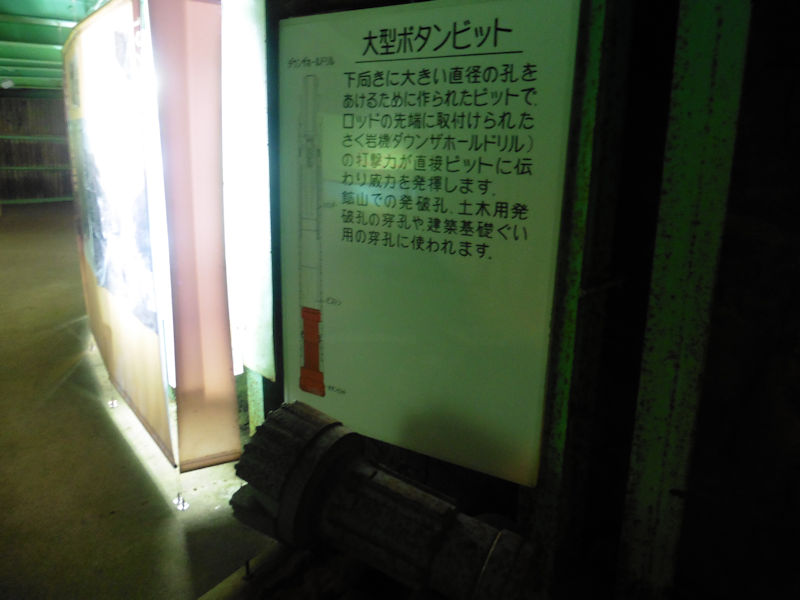 大型ボタンビット
ダウンザホールドリル
下向きに大きい直径の孔を
あけるために作られたビットで、
ロッドの先端に取付けられた
さく岩機ダウンザホールドリル)
の打撃力が直接ビットに伝
わり威力を発揮します。
鉱山での発破孔、土木用発
破孔の穿孔や建築基礎ぐい
用の穿孔に使われます。
ピストン